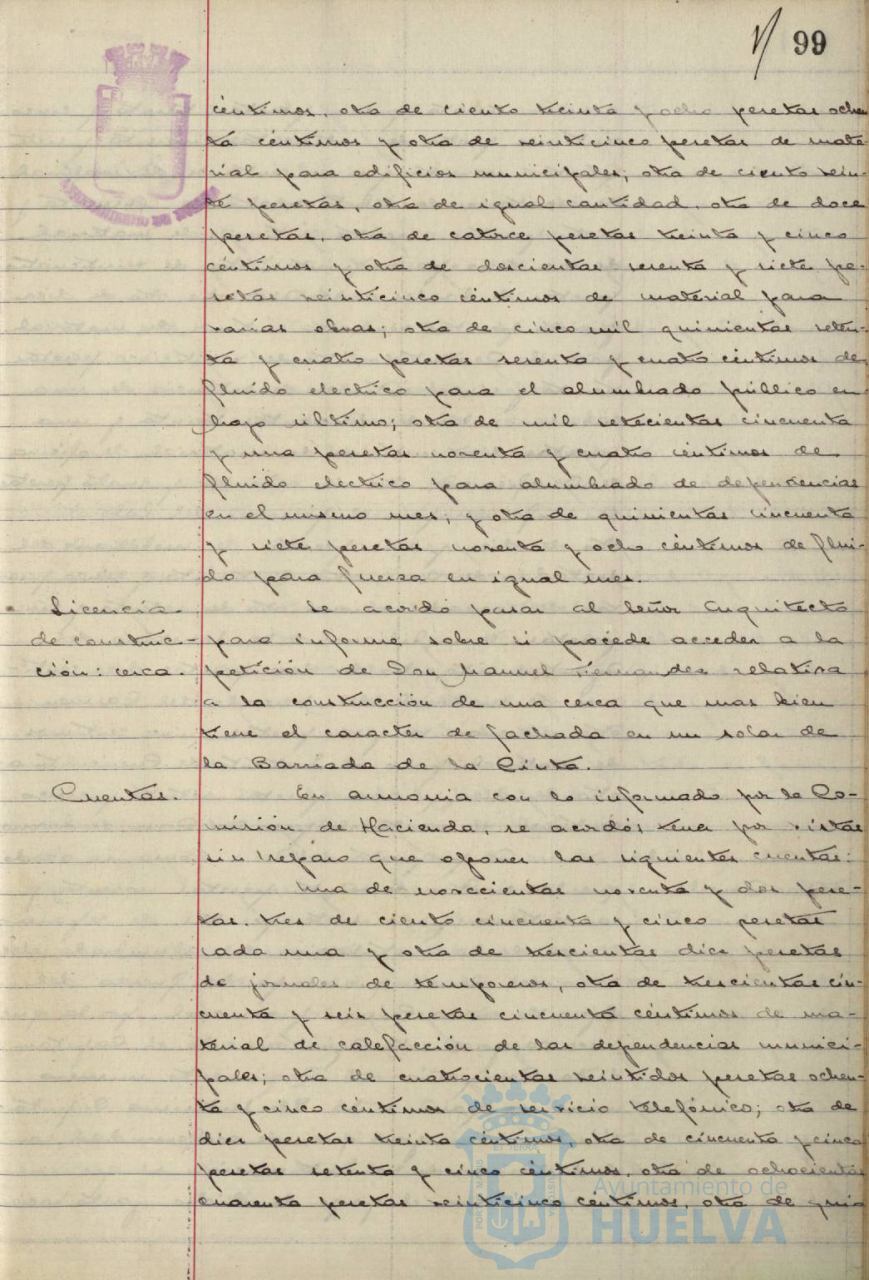 99
céntimos, otra de ciento treinta y ocho pesetas ochen
ta céntimos y otra de veinticinco pesetas de mate-
rial para edificios municipales; otra de ciento vein-
te pesetas, otra de igual cantidad, otra de doce
pesetas, otra de catorce pesetas treinta y cinco
céntimos y otra de doscientas sesenta y siete pe-
setas veinticinco céntimos de material para
varias obras; otra de cinco mil quinientas seten-
ta y cuatro pesetas sesenta y cuatro céntimos de
fluido electrico para el alumbrado público en
último; otra de mil setecientas cincuenta
y una pesetas noventa y cuatro céntimos de
fluido electrico para alumbrado de dependencias
en el mismo mes; y otra de quinientas cincuenta
y siete pesetas noventa y ocho céntimos de flui-
do para fuerza en igual mes.
Licencia
de construc-
ción: cerca.
Se acordó pasar al Señor Arquitecto
para informe sobre si procede acceder a la
petición de Don Manuel Fernandez relativa
a la construcción de una cerca que mas bien
tiene el caracter de fachada en un solar de
la Barriada de la Cinta.
Cuentas.
En armonia con lo informado por la Co-
misión de Hacienda, se acordó tener por vistas
sin reparo que oponer las siguientes cuentas:
Una de novecientas noventa y dos pese-
tas. tres de ciento cincuenta y cinco pesetas
cada una y otra de trescientas diez pesetas
de jornales de temporeros, otra de trescientas cin-
cuenta y seis pesetas cincuenta céntimos de ma-
terial de calefacción de las dependencias munici-
pales; otra de cuatrocientas veintidos pesetas ochen-
ta y cinco céntimos de servicio telefónico; otra de
diez pesetas treinta céntimos, otra de cincuenta y cinco
pesetas setenta y cinco céntimos, otra de ochocientas
cuarenta pesetas veinticinco céntimos, otra de
Ayuntamiento de
HUELVA